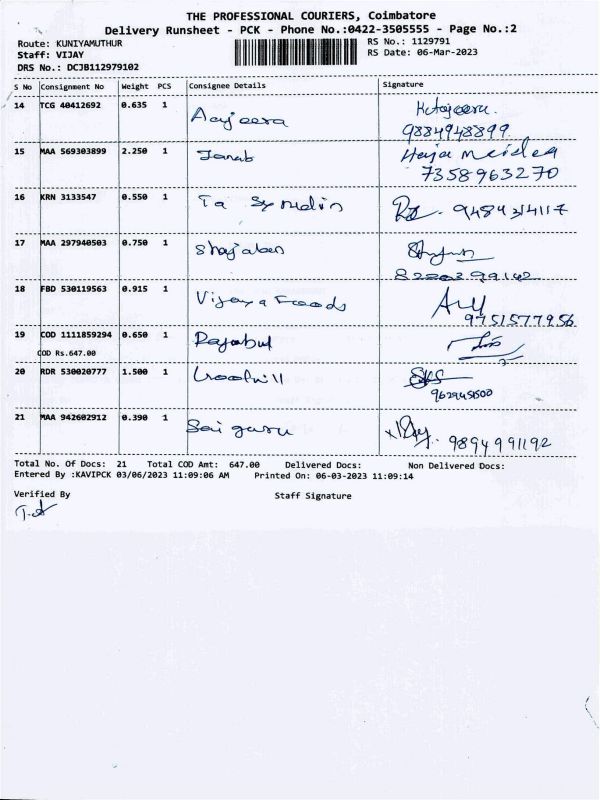 THE PROFESSIONAL COURIERS, Coimbatore
Delivery Runsheet - PCK - Phone No.:0422-3505555 - Page No.:2
Route: KUNIYAMUTHUR RS No.: 1129791
Staff: VIJAY RS Date: 06-Mar-2023
DRS No.: DCJB112979102
S No Consignment No Weight PCS Consignee Details Signature
14 TCG 40412692 0.635 1 
9884948899
15 MAA 569303899 2.250 1 Janab
7358963270
16 KRN 3133547 0.550 1 9484314117
17 MAA 297940503 0.750 1 Shajahan
18 FBD 530119563 0.915 1 Vijaya Foods
9751577956
19 COD 1111859294 0.650 1 Rajabul
COD Rs.647.00
20 RDR 530020777 1.500 1 Goodwill SKS
9629451500
21 MAA 942602912 0.390 1 Sai guru 9894991192
Total No. Of Docs: 21 Total COD Amt: 647.00 Delivered Docs: Non Delivered Docs:
Entered By :KAVIPCK 03/06/2023 11:09:06 AM Printed On: 06-03-2023 11:09:14
Verified By Staff Signature